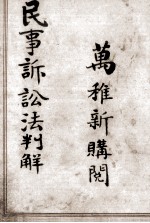 萬雅新購閱
民事訴訟法判解